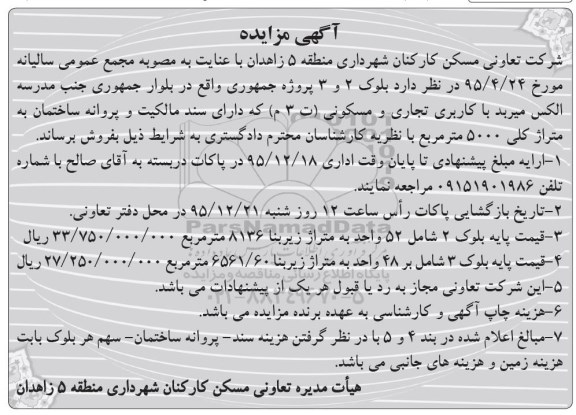 آگهی مزایده
شرکت تعاونی مسکن کارکنان شهرداری منطقه ۵ زاهدان با عنایت به مصوبه مجمع عمومی سالیانه
مورخ ۹۵/۴/۲۴ در نظر دارد بلوک ۲ و ۳ پروژه جمهوری واقع در بلوار جمهوری جنب مدرسه
الکس میربد با کاربری تجاری و مسکونی (ت ۳ م) که دارای سند مالکیت و پروانه ساختمان به
متراژ کلی ۵۰۰۰ مترمربع با نظریه کارشناسان محترم دادگستری به شرایط ذیل بفروش برساند.
۱-ارایه مبلغ پیشنهادی تا پایان وقت اداری ۹۵/۱۲/۱۸ در پاکات دربسته به آقای صالح با شماره
تلفن ۰۹۱۵۱۹۰۱۹۸۶ مراجعه نمایند.
۲-تاریخ بازگشایی پاکات رأس ساعت ۱۲ روز شنبه ۹۵/۱۲/۲۱ در محل دفتر تعاونی.
ParsNamadData
۳-قیمت پایه بلوک ۲ شامل ۵۲ واحد به متراژ زیربنا ۸۱۳۶ مترمربع ۳۳/۷۵۰/۰۰۰/۰۰۰ ریال
۴-قیمت پایه بلوک ۳ شامل بر ۴۸ واحد به متراژ زیربنا ۶۵۶۱/۶۰ مترمربع ۲۷/۲۵۰/۰۰۰/۰۰۰ ریال
پایگاه اطلاع رسانی مناقصه و مزایده
۵-این شرکت تعاونی مجاز به رد یا قبول هر یک از پیشنهادات می باشد.
۰۲۱-۸۸۳۴۹۶۷۰-۵
۶-هزینه چاپ آگهی و کارشناسی به عهده برنده مزایده می باشد.
۷-مبالغ اعلام شده در بند ۴ و ۵ با در نظر گرفتن هزینه سند- پروانه ساختمان- سهم هر بلوک بابت
هزینه زمین و هزینه های جانبی می باشد.
هیأت مدیره تعاونی مسکن کارکنان شهرداری منطقه ۵ زاهدان